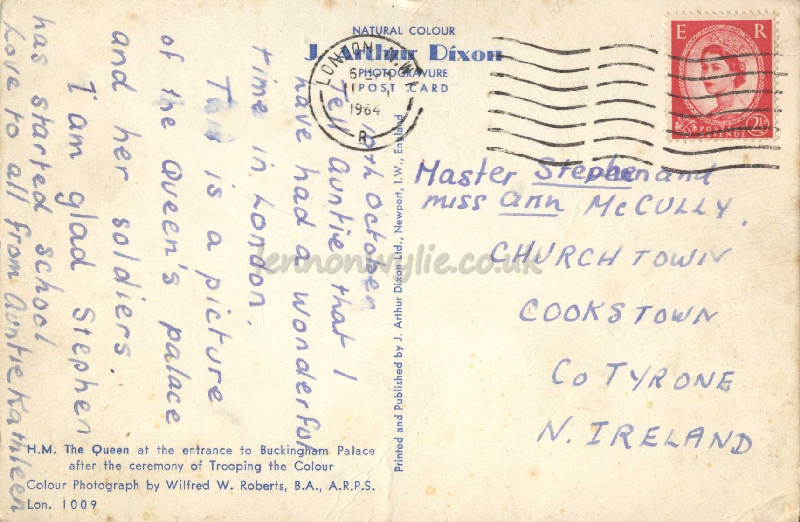 NATURAL COLOUR
J. Arthur Dixon
PHOTOGRAVURE
POST CARD
LONDON. N.W.1
1964
R
E R
POSTAGE
REVENUE
2½
10th October
Tell Auntie that I
have had a wonderful
time in London.
This is a picture
of the Queen's palace
and her soldiers.
I am glad Stephen
has started school
Love to all from Auntie Kathleen
Master Stephen and
miss Ann McCULLY,
CHURCHTOWN
COOKSTOWN
Co TYRONE
N. IRELAND
Printed and Published by J. Arthur Dixon Ltd., Newport, I.W., England
H.M. The Queen at the entrance to Buckingham Palace
after the ceremony of Trooping the Colour
Colour Photograph by Wilfred W. Roberts, B.A., A.R.P.S.
Lon. 1009
lennonwylie.co.uk